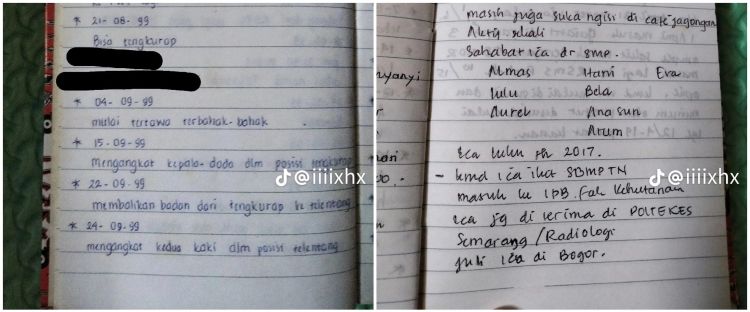 * 21-08-99
Bisa tengkurap
* 04-09-99
mulai tertawa terbahak-bahak.
* 15-09-99
Mengangkat kepala-dada dlm posisi tengkurap
* 22-09-99
membalikan badan dari tengkurap ke telentang
* 24-09-99
mengangkat kedua kaki dlm posisi telentang
@iiiixhx
masih juga suka ngisi di cafe jagongan
Aktif sekali
Sahabat ica dr SMP.
Almas Hani Eva
Lulu Bela
Aurel Ana sun
Arum
nyanyi
Ica lulus th 2017.
- kmd ica ikut SBMPTN
masuk ke IPB. Fak Kehutanan
ica jg di terima di POLTEKES
Semarang / Radiologi
juli ica di Bogor.
@iiiixhx